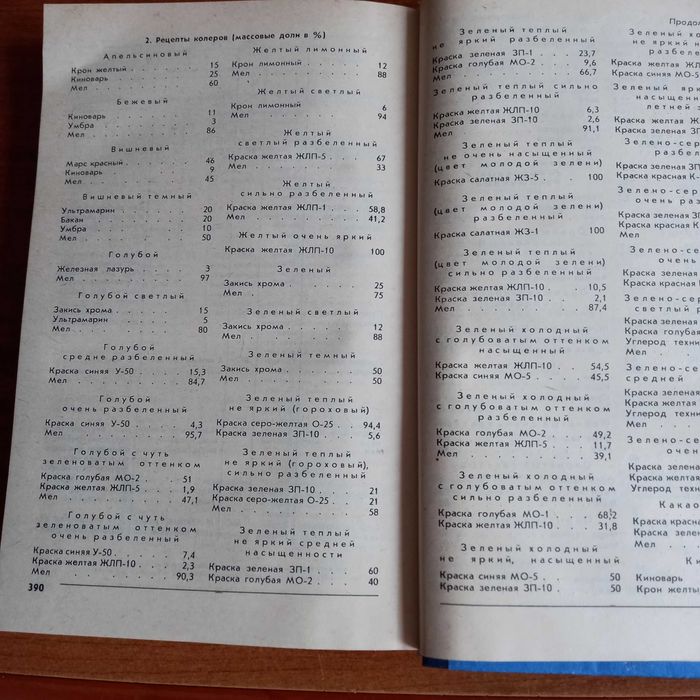 2. Рецепты колеров (массовые доли в %)
Апельсиновый
Крон желтый . . . . . 15
Киноварь . . . . . 25
Мел . . . . . 60
Бежевый
Киноварь . . . . . 11
Умбра . . . . . 3
Мел . . . . . 86
Вишневый
Марс красный . . . . . 46
Киноварь . . . . . 9
Мел . . . . . 45
Вишневый темный
Ультрамарин . . . . . 20
Бакан . . . . . 20
Умбра . . . . . 10
Мел . . . . . 50
Голубой
Железная лазурь . . . . 3
Мел . . . . . 97
Голубой светлый
Закись хрома . . . . . 15
Ультрамарин . . . . . 5
Мел . . . . . 80
Голубой
средне разбеленный
Краска синяя У-50 . . . . 15,3
Мел . . . . . 84,7
Голубой
очень разбеленный
Краска синяя У-50 . . . . 4,3
Мел . . . . . 95,7
Голубой с чуть
зеленоватым оттенком
Краска голубая МО-2 . . . 51
Краска желтая ЖЛП-5 . . . 1,9
Мел . . . . . 47,1
Голубой с чуть
зеленоватым оттенком
очень разбеленный
Краска синяя У-50 . . . . 7,4
Краска желтая ЖЛП-10 . . . 2,3
Мел . . . . . 90,3
390
Желтый лимонный
Крон лимонный . . . . . 12
Мел . . . . . 88
Желтый светлый
Крон лимонный . . . . . 6
Мел . . . . . 94
Желтый
светлый разбеленный
Краска желтая ЖЛП-5 . . . 67
Мел . . . . . 33
Желтый
сильно разбеленный
Краска желтая ЖЛП-1 . . . 58,8
Мел . . . . . 41,2
Желтый очень яркий
Краска желтая ЖЛП-10 100
Зеленый
Закись хрома . . . . . 25
Мел . . . . . 75
Зеленый светлый
Закись хрома . . . . . 12
Мел . . . . . 88
Зеленый темный
Закись хрома . . . . . 50
Мел . . . . . 50
Зеленый теплый
не яркий (гороховый)
Краска серо-желтая О-25 . . 94,4
Краска зеленая ЗП-10 . . . 5,6
Зеленый теплый
не яркий (гороховый),
сильно разбеленный
Краска зеленая ЗП-10 . . . 21
Краска серо-желтая О-25 . . 21
Мел . . . . . 58
Зеленый теплый
не яркий средней
насыщенности
Краска зеленая ЗП-1 . . . 60
Краска голубая МО-2 . . . 40
Зеленый теплый
не яркий разбеленный
Краска зеленая ЗП-1 . . . 23,7
Краска голубая МО-2 . . . 9,6
Мел . . . . . 66,7
Зеленый теплый сильно
разбеленный
Краска желтая ЖЛП-10 . . . 6,3
Краска зеленая ЗП-10 . . . 2,6
Мел . . . . . 91,1
Зеленый теплый
не очень насыщенный
(цвет молодой зелени)
Краска салатная ЖЗ-5 . . 100
Зеленый теплый
(цвет молодой зелени)
разбеленный
Краска салатная ЖЗ-1 . . 100
Зеленый теплый
(цвет молодой зелени)
сильно разбеленный
Краска желтая ЖЛП-10 . . . 10,5
Краска зеленая ЗП-10 . . . 2,1
Мел . . . . . 87,4
Зеленый холодный
с голубоватым оттенком
насыщенный
Краска желтая ЖЛП-10 . . . 54,5
Краска синяя МО-5 . . . 45,5
Зеленый холодный
с голубоватым оттенком
разбеленный
Краска голубая МО-2 . . . 49,2
Краска желтая ЖЛП-5 . . . 11,7
Мел . . . . . 39,1
Зеленый холодный
с голубоватым оттенком
сильно разбеленный
Краска голубая МО-1 . . . 68,2
Краска желтая ЖЛП-10 . . . 31,8
Зеленый холодный
не яркий, насыщенный
Краска синяя МО-5 . . . 50
Краска зеленая ЗП-10 . . . 50
Краска желтая
Краска синяя МО-5
насыщенный
Краска желтая
Краска зеленая
Зелено-сер
разбел
Краска зеленая
Краска красная К-
Зелено-серо
Краска зеленая
Краска красная К
Зелено-серо
очень
Краска зеленая
Краска красная
Зелено-сер
светлый раз
Краска зеленая
Краска голубая
Углерод техни
Мел
Зелено-се
средней
Краска зеленая
Краска желтая
Углерод техни
Зелено-се
очень
Краска зеленая
Краска желтая
Углерод техни
Какао
Краска красная
Краска зеленая
Мел
Киноварь
Крон желты